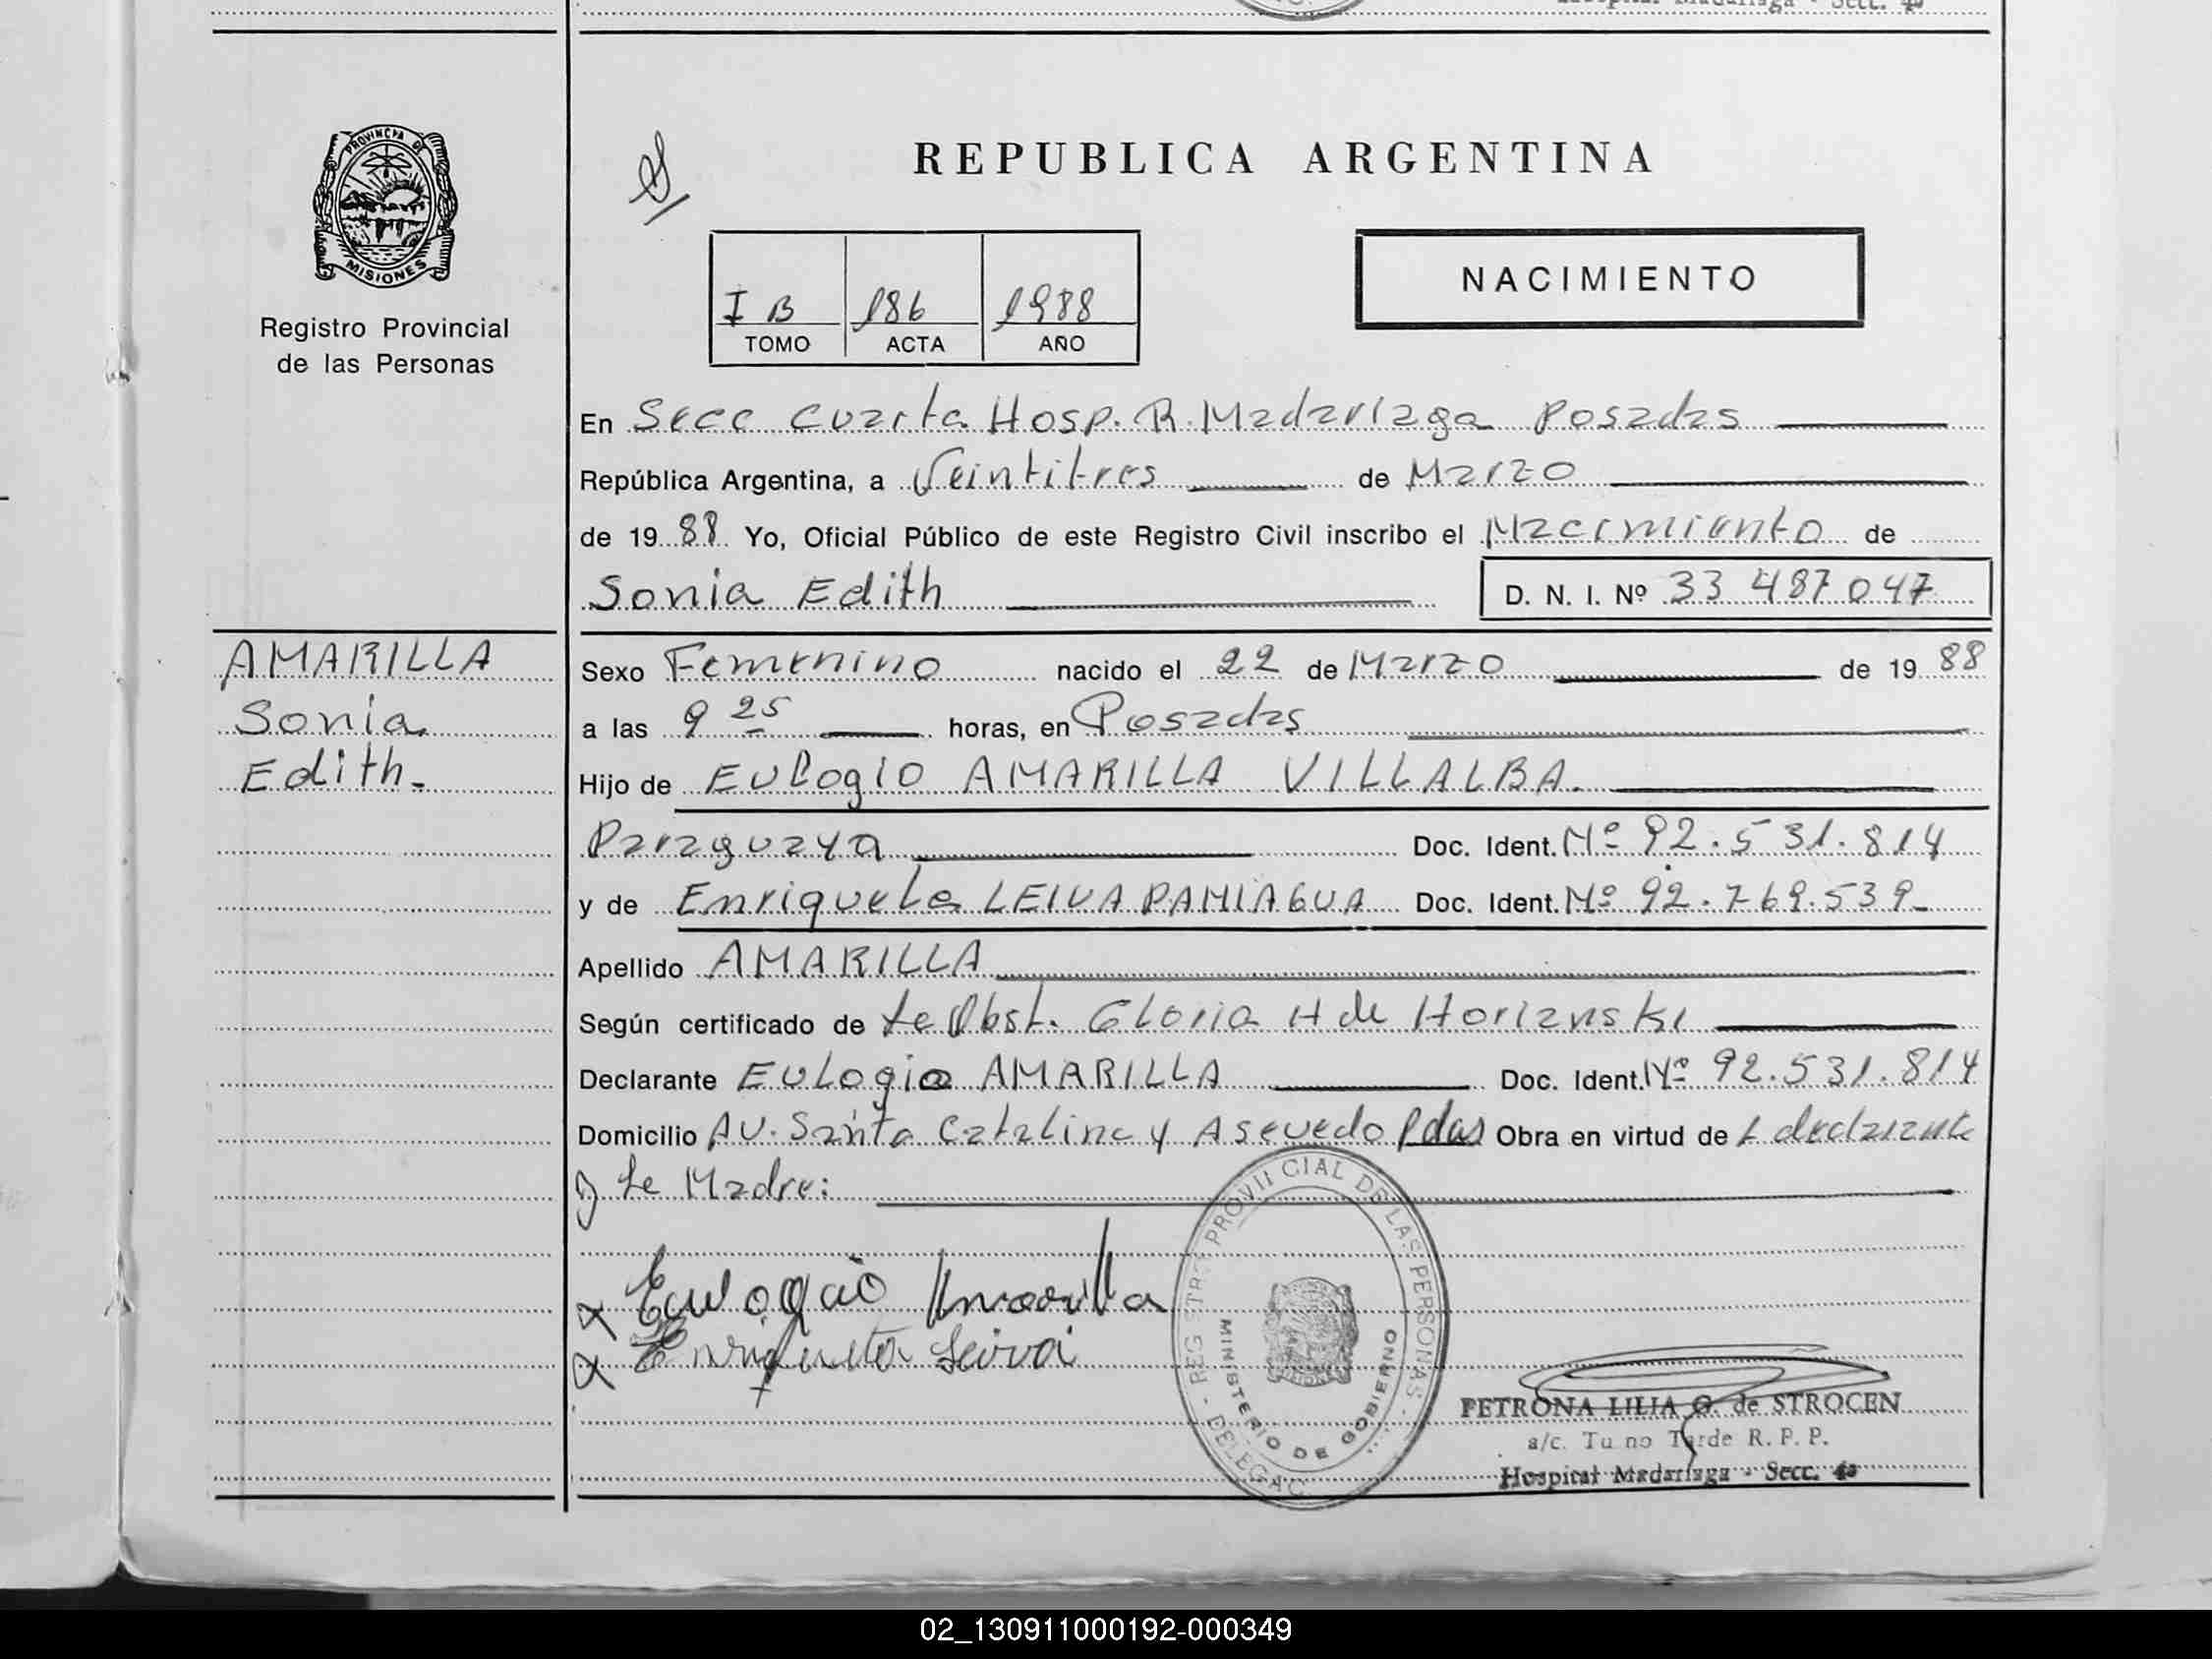 Hospital Madariaga - Secc. 4ª
PROVINCIA D
MISIONES
Registro Provincial
de las Personas
REPUBLICA ARGENTINA
NACIMIENTO
I B 186 1988
TOMO ACTA AÑO
En Secc Cuarta Hosp. R. Madariaga Posadas
República Argentina, a Veintitres de Marzo
de 1988 Yo, Oficial Público de este Registro Civil inscribo el Nacimiento de
Sonia Edith D. N. I. Nº 33 487 047
AMARILLA
Sonia
Edith-
Sexo Femenino nacido el 22 de Marzo de 1988
a las 9 25 horas, en Posadas
Hijo de Eulogio AMARILLA VILLALBA.
Paraguaya Doc. Ident. Nº 92.531.814
y de Enriqueta LEIVA PANIAGUA Doc. Ident. Nº 92.769.539-
Apellido AMARILLA
Según certificado de la Obst. Gloria H de Horianski
Declarante Eulogio AMARILLA Doc. Ident. Nº 92.531.814
Domicilio AV. Santa Catalina y Asevedo Pdas Obra en virtud de L declarante
y la Madre:
Eulogio Amarilla
Enriqueta Leiva
REGISTRO PROVINCIAL DE LAS PERSONAS - DELEGAC
MINISTERIO DE GOBIERNO
PETRONA LILIA G. de STROCEN
a/c. Turno Tarde R. P. P.
Hospital Madariaga - Secc. 4ª
02_130911000192-000349